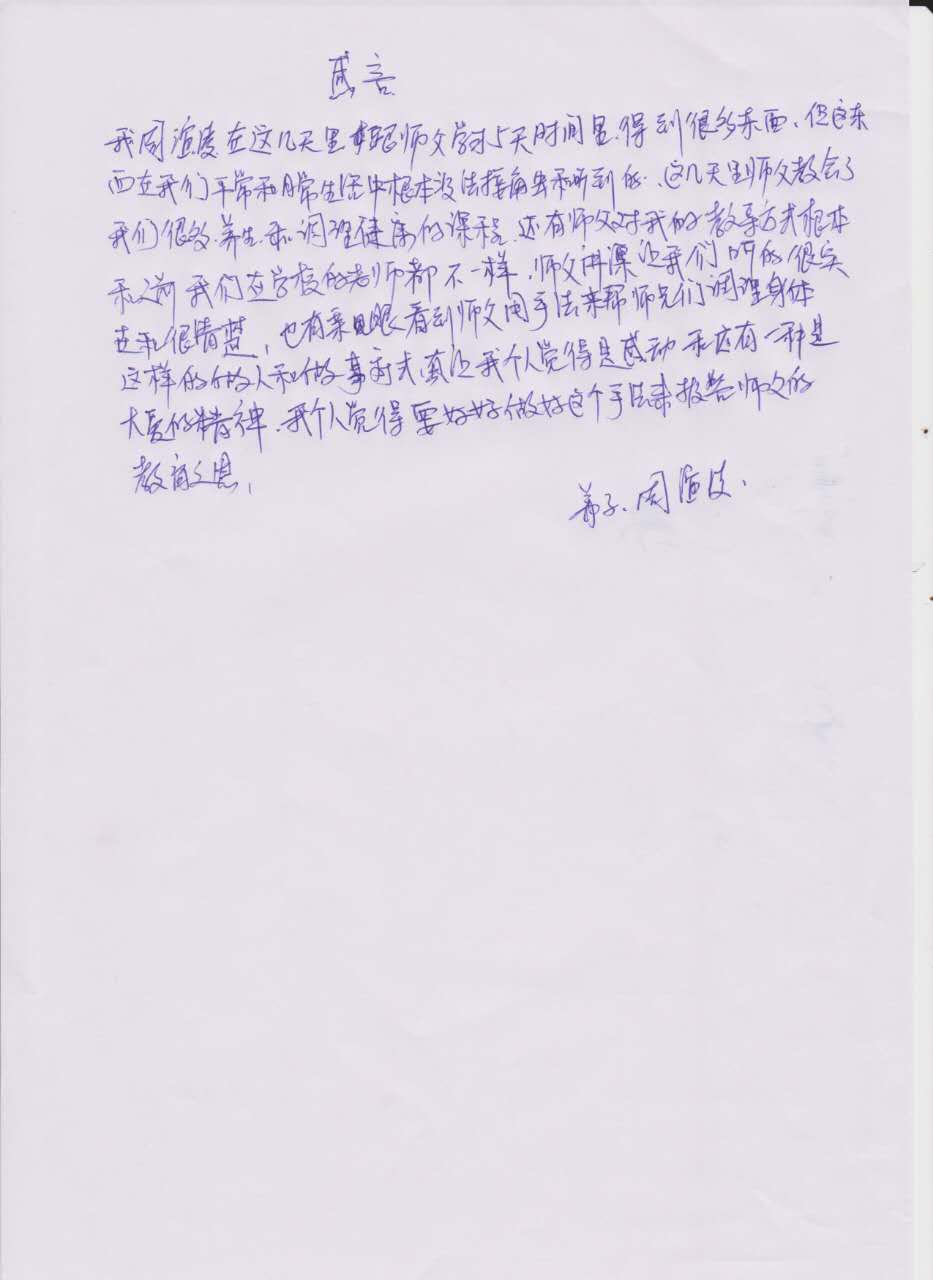 感言
我周渲凌在这几天里跟师父学习5天时间里.得到很多东西、但这东
西在我们平常和日常生活中根本没法接角虫和听到的.这几天里师父教会了
我们很多养生和调理健康的课程.还有师父对我的教导方式根本
和之前我们在学校的老师都不一样,师父讲课让我们听的很实
在和很清楚,也有亲眼看到师父用手法来帮师兄们调理身体
这样的做人和做事方式真让我个人觉得是感动和还有一种是
大爱的精神.我个人觉得要好好做好这个手法来报答师父的
教育之恩,
弟子.周渲